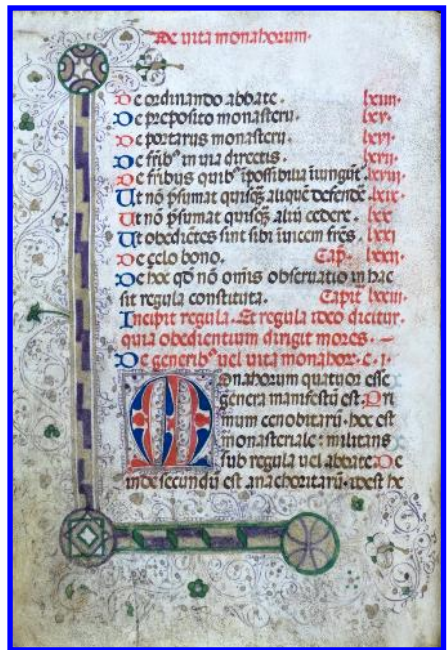 De vita monahorum.
De ordinando abbate. lxiiii.
De preposito monasterii. lxv.
De portariis monasterii. lxvi.
De frib9 in via directis. lxvii.
De fribus quib9 ipossibilia iniungūt. lxviii.
Ut nō psumat quisq; aliquē defendē. lxix.
Ut nō psumat quisq; aliū cedere. lxx.
Ut obediētes sint sibi invicem frēs. lxxi
De çelo bono. Cap. lxxii.
De hoc qd nō omīs observatio in hac
sit regula constituta. Capit lxxiii.
Incipit regula. Et regula ideo dicitur.
quia obedientium dirigit mores.
De generib9 vel vita monahor. c. i.
Monahorum quatuor esse
genera manifestū est. Pri
mum cenobitarū. hoc est
monasteriale: militans
sub regula vel abbate. De
inde secundū est anachoritarū. idest he